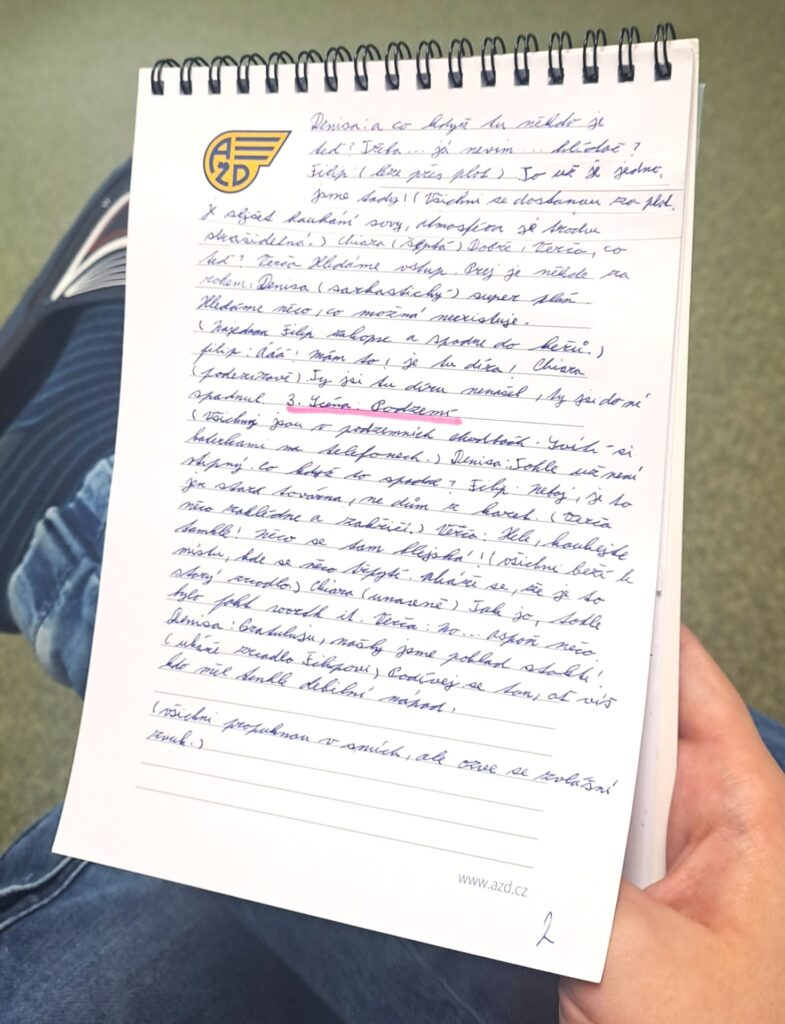 AŽD
Denisa: a co když tu někdo je
teď? Třeba... já nevím... hlídač?
Filip (leze přes plot) To už je jedno,
jsme tady! (Všichni se dostanou za plot.
Je slyšet houkání sovy, atmosféra je trochu
strašidelná.) Chiara (šeptá) Dobře, Verča, co
teď? Verča Hledáme vstup. Prej je někde za
rohem. Denisa (sarkasticky) super plán.
Hledáme něco, co možná neexistuje.
(Najednou Filip zakopne a spadne do keřů.)
filip: Ááá! mám to, je tu díra! Chiara
(podezíravě) Ty jsi tu díru nenašel, ty jsi do ní
spadnul 3. Scéna: Podzemí
(Všichni jsou v podzemních chodbách. Svítí si
baterkami na telefonech.) Denisa: Tohle už není
vtipný. Co když to spadne? Filip: Neboj, je to
jen stará továrna, ne dům z karet. (Verča
něco zahlédne a zakřičí.) Verča: Hele, koukejte
tamhle! Něco se tam blejská!! (všichni běží k
místu, kde se něco třpytí. Ukáže se, že je to
starý zrcadlo.) Chiara (unaveně) Tak jo, tohle
bylo fakt worth it. Verča: No... aspoň něco.
Denisa: Gratuluju, našly jsme poklad století!
(ukáže zrcadlo Filipovi) Podívej se tam, ať víš
kdo měl tenhle debilní nápad.
(všichni propuknou v smích, ale ozve se zvláštní
zvuk.)
www.azd.cz
2